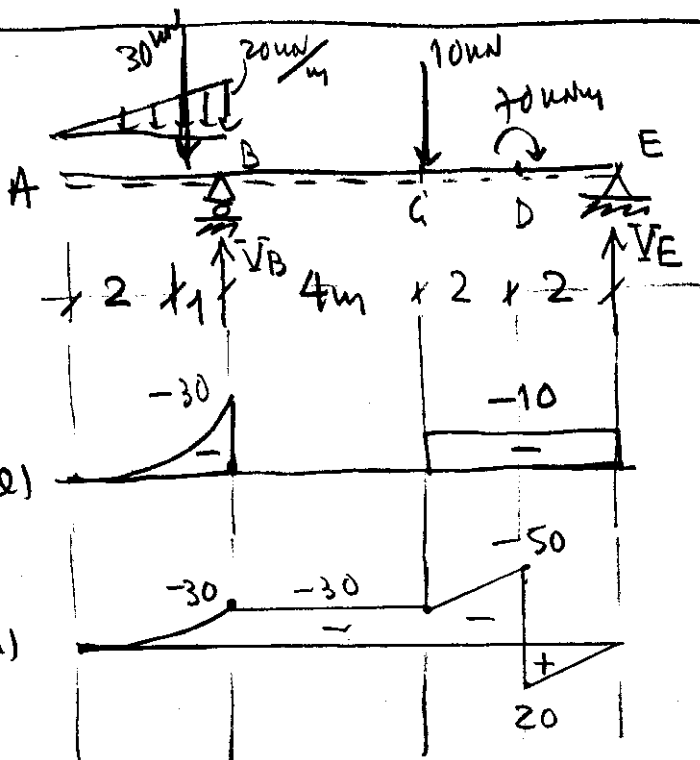 30 kN
20 kN/m
10 kN
70 kNm
A
B
C
D
E
VB
VE
2
1
4m
2
2
-30
-
-10
-
-30
-30
-
-
-50
+
20